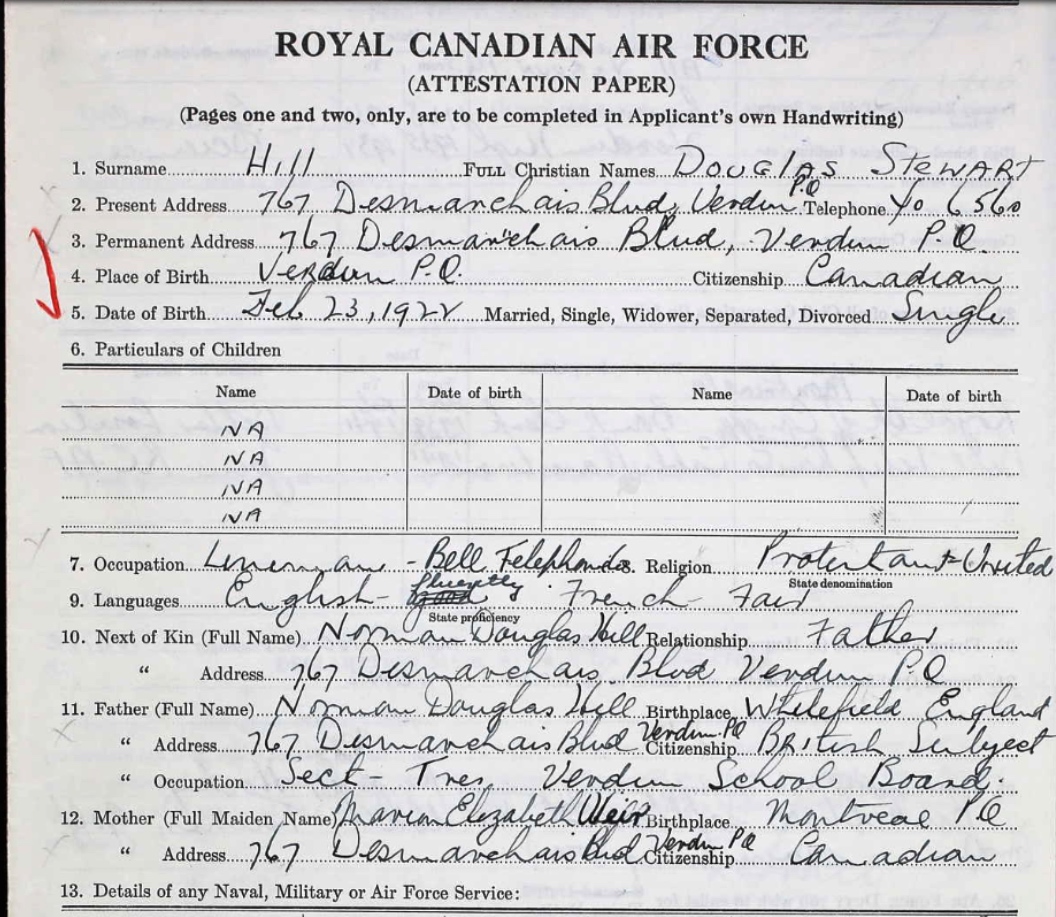 ROYAL CANADIAN AIR FORCE
(ATTESTATION PAPER)
(Pages one and two, only, are to be completed in Applicant's own Handwriting)
1. Surname Hill FULL Christian Names DOUGLAS STEWART
2. Present Address 767 Desmarchais Blvd, Verdun P.Q Telephone YO 6560
3. Permanent Address 767 Desmarchais Blvd, Verdun P.Q.
4. Place of Birth Verdun P.Q. Citizenship Canadian
5. Date of Birth Feb 23, 1922 Married, Single, Widower, Separated, Divorced Single
6. Particulars of Children
Name Date of birth Name Date of birth
NA
NA
NA
NA
7. Occupation Lineman - Bell Telephone Co. Religion Protestant-United
State denomination
9. Languages English - fluently French - Fair
State proficiency
10. Next of Kin (Full Name) Norman Douglas Hill Relationship Father
" Address 767 Desmarchais Blvd Verdun P.Q
11. Father (Full Name) Norman Douglas Hill Birthplace Whitefield England
" Address 767 Desmarchais Blvd Verdun PQ Citizenship British Subject
" Occupation Sect - Tres, Verdun School Board.
12. Mother (Full Maiden Name) Marion Elizabeth Weir Birthplace Montreal P.Q
" Address 767 Desmarchais Blvd Verdun PQ Citizenship Canadian
13. Details of any Naval, Military or Air Force Service: